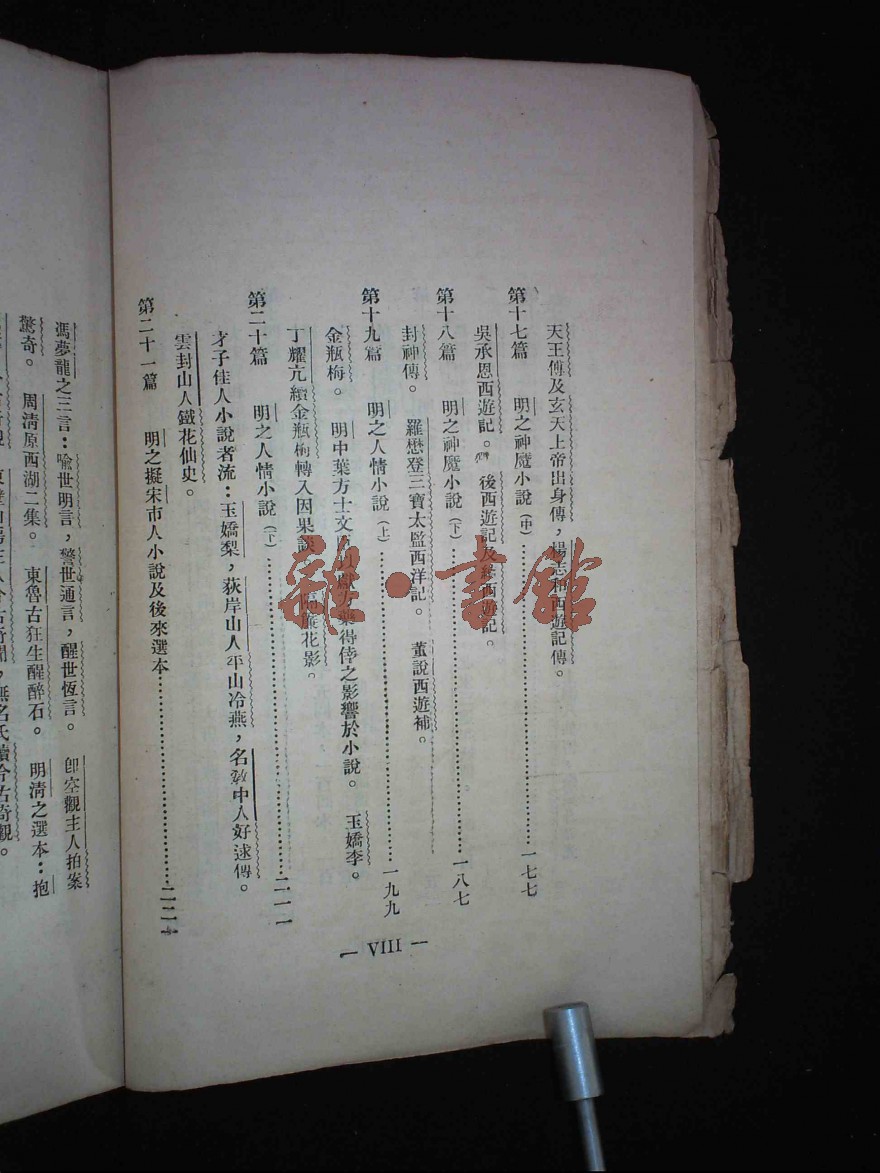 天王傳及玄天上帝出身傳，楊志和西遊記傳。
第十七篇　明之神魔小說(中)……一七七
吳承恩西遊記。　後西遊記及續西遊記。
第十八篇　明之神魔小說(下)……一八七
封神傳。　羅懋登三寶太監西洋記。　董說西遊補。
第十九篇　明之人情小說(上)……一九九
金瓶梅。　明中葉方士文　得倖之影響於小說。　玉嬌李。
丁耀亢續金瓶梅轉入因果談　隔簾花影。
第二十篇　明之人情小說(下)……二一一
才子佳人小說者流：玉嬌梨，荻岸山人平山冷燕，名敎中人好逑傳。
雲封山人鐵花仙史。
第二十一篇　明之擬宋市人小說及後來選本……二二
— VIII —
馮夢龍之三言：喻世明言，警世通言，醒世恆言。　卽空觀主人拍案
驚奇。　周清原西湖二集。　東魯古狂生醒醉石。　明清之選本：抱
今古奇聞，無名氏續今古奇觀。
雜·書館